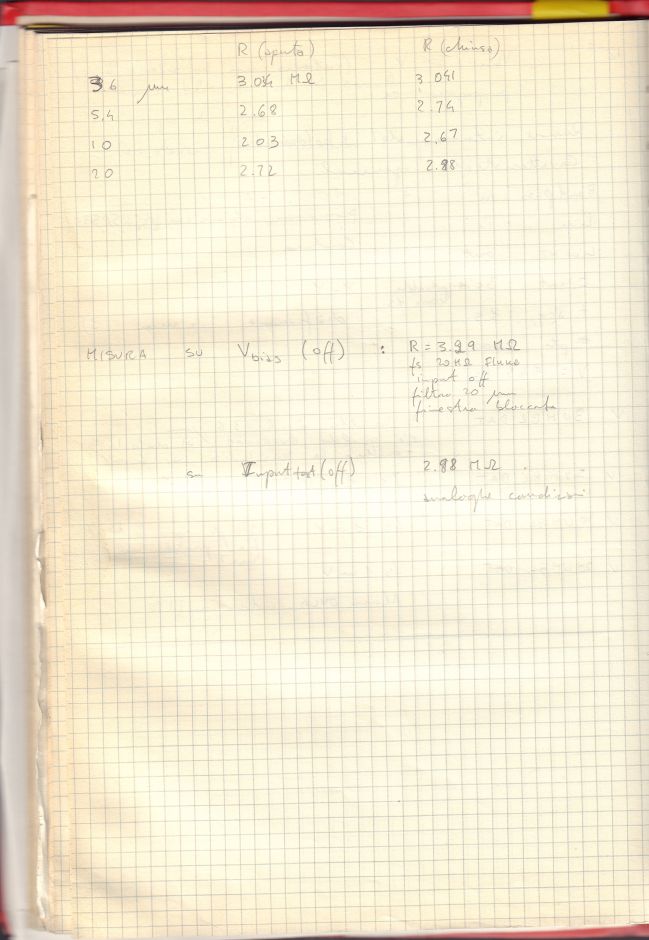 R (aperto) R (chiuso)
3.6 μm 3.04 MΩ 3.041
5.4 2.68 2.74
10 2.03 2.67
20 2.72 2.88
MISURA su Vbias (off) : R = 3.29 MΩ
fs 20 MΩ Fluke
input off
filtro 20 μm
finestra bloccata
su Input test (off) 2.88 MΩ .
analoghe condizioni